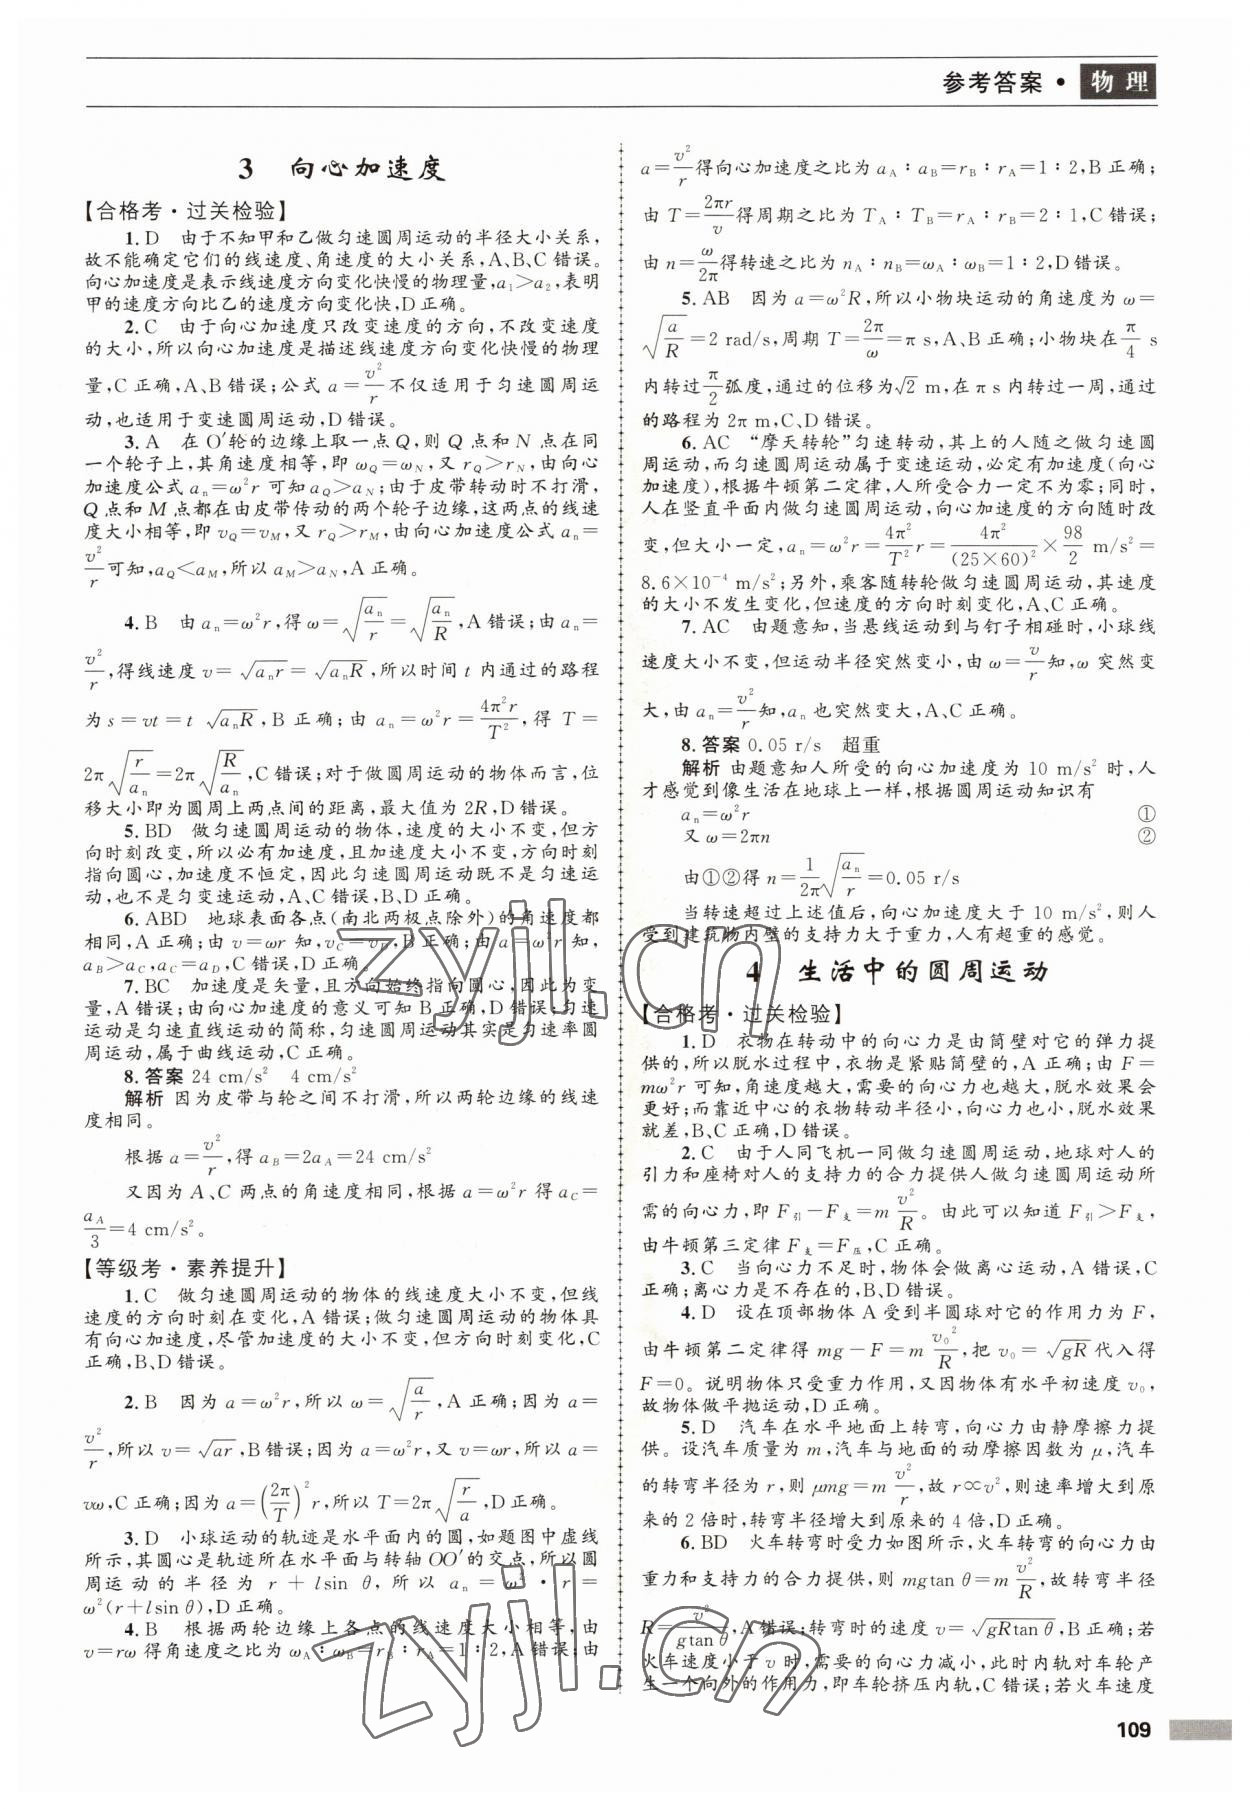 参考答案·物理
3 向心加速度
【合格考·过关检验】
1.D 由于不知甲和乙做匀速圆周运动的半径大小关系,
故不能确定它们的线速度、角速度的大小关系,A、B、C错误。
向心加速度是表示线速度方向变化快慢的物理量,a₁>a₂,表明
甲的速度方向比乙的速度方向变化快,D正确。
2.C 由于向心加速度只改变速度的方向,不改变速度
的大小,所以向心加速度是描述线速度方向变化快慢的物理
量,C正确,A、B错误;公式 a=v²/r 不仅适用于匀速圆周运
动,也适用于变速圆周运动,D错误。
3.A 在O′轮的边缘上取一点Q,则Q点和N点在同
一个轮子上,其角速度相等,即 ω_Q=ω_N,又 r_Q>r_N,由向心
加速度公式 a_n=ω²r 可知 a_Q>a_N;由于皮带转动时不打滑,
Q点和M点都在由皮带传动的两个轮子边缘,这两点的线速
度大小相等,即 v_Q=v_M,又 r_Q>r_M,由向心加速度公式 a_n=
v²/r 可知,a_Q<a_M,所以 a_M>a_N,A正确。
4.B 由 a_n=ω²r,得 ω=√(a_n/r)=√(a_n/R),A错误;由 a_n=
v²/r,得线速度 v=√(a_n r)=√(a_n R),所以时间 t 内通过的路程
为 s=vt=t √(a_n R),B正确;由 a_n=ω²r=4π²r/T²,得 T=
2π√(r/a_n)=2π√(R/a_n),C错误;对于做圆周运动的物体而言,位
移大小即为圆周上两点间的距离,最大值为2R,D错误。
5.BD 做匀速圆周运动的物体,速度的大小不变,但方
向时刻改变,所以必有加速度,且加速度大小不变,方向时刻
指向圆心,加速度不恒定,因此匀速圆周运动既不是匀速运
动,也不是匀变速运动,A、C错误,B、D正确。
6.ABD 地球表面各点(南北两极点除外)的角速度都
相同,A正确;由 v=ωr 知,v_C=v_D,B正确;由 a=ω²r 知,
a_B>a_C,a_C=a_D,C错误,D正确。
7.BC 加速度是矢量,且方向始终指向圆心,因此为变
量,A错误;由向心加速度的意义可知B正确,D错误;匀速
运动是匀速直线运动的简称,匀速圆周运动其实是匀速率圆
周运动,属于曲线运动,C正确。
8.答案 24 cm/s² 4 cm/s²
解析 因为皮带与轮之间不打滑,所以两轮边缘的线速
度相同。
根据 a=v²/r,得 a_B=2a_A=24 cm/s²
又因为A、C两点的角速度相同,根据 a=ω²r 得 a_C=
a_A/3=4 cm/s²。
【等级考·素养提升】
1.C 做匀速圆周运动的物体的线速度大小不变,但线
速度的方向时刻在变化,A错误;做匀速圆周运动的物体具
有向心加速度,尽管加速度的大小不变,但方向时刻变化,C
正确,B、D错误。
2.B 因为 a=ω²r,所以 ω=√(a/r),A正确;因为 a=
v²/r,所以 v=√(ar),B错误;因为 a=ω²r,又 v=ωr,所以 a=
vω,C正确;因为 a=(2π/T)²r,所以 T=2π√(r/a),D正确。
3.D 小球运动的轨迹是水平面内的圆,如题图中虚线
所示,其圆心是轨迹所在水平面与转轴OO′的交点,所以圆
周运动的半径为 r+lsin θ,所以 a_n=ω²·r=
ω²(r+lsin θ),D正确。
4.B 根据两轮边缘上各点的线速度大小相等,由
v=rω 得角速度之比为 ω_A∶ω_B=r_B∶r_A=1∶2,A错误;由
a=v²/r 得向心加速度之比为 a_A∶a_B=r_B∶r_A=1∶2,B正确;
由 T=2πr/v 得周期之比为 T_A∶T_B=r_A∶r_B=2∶1,C错误;
由 n=ω/2π 得转速之比为 n_A∶n_B=ω_A∶ω_B=1∶2,D错误。
5.AB 因为 a=ω²R,所以小物块运动的角速度为 ω=
√(a/R)=2 rad/s,周期 T=2π/ω=π s,A、B正确;小物块在 π/4 s
内转过 π/2 弧度,通过的位移为√2 m,在 π s 内转过一周,通过
的路程为 2π m,C、D错误。
6.AC “摩天转轮”匀速转动,其上的人随之做匀速圆
周运动,而匀速圆周运动属于变速运动,必定有加速度(向心
加速度),根据牛顿第二定律,人所受合力一定不为零;同时,
人在竖直平面内做匀速圆周运动,向心加速度的方向随时改
变,但大小一定,a_n=ω²r=4π²/T² r=4π²/(25×60)²×98/2 m/s²=
8.6×10⁻⁴ m/s²;另外,乘客随转轮做匀速圆周运动,其速度
的大小不发生变化,但速度的方向时刻变化,A、C正确。
7.AC 由题意知,当悬线运动到与钉子相碰时,小球线
速度大小不变,但运动半径突然变小,由 ω=v/r 知,ω 突然变
大,由 a_n=v²/r 知,a_n 也突然变大,A、C正确。
8.答案 0.05 r/s 超重
解析 由题意知人所受的向心加速度为 10 m/s² 时,人
才感觉到像生活在地球上一样,根据圆周运动知识有
a_n=ω²r ①
又 ω=2πn ②
由①②得 n=1/2π √(a_n/r)=0.05 r/s
当转速超过上述值后,向心加速度大于 10 m/s²,则人
受到建筑物内壁的支持力大于重力,人有超重的感觉。
4 生活中的圆周运动
【合格考·过关检验】
1.D 衣物在转动中的向心力是由筒壁对它的弹力提
供的,所以脱水过程中,衣物是紧贴筒壁的,A正确;由 F=
mω²r 可知,角速度越大,需要的向心力也越大,脱水效果会
更好;而靠近中心的衣物转动半径小,向心力也小,脱水效果
就差,B、C正确,D错误。
2.C 由于人同飞机一同做匀速圆周运动,地球对人的
引力和座椅对人的支持力的合力提供人做匀速圆周运动所
需的向心力,即 F_引-F_支=m v²/R。由此可以知道 F_引>F_支,
由牛顿第三定律 F_支=F_压,C正确。
3.C 当向心力不足时,物体会做离心运动,A错误,C
正确;离心力是不存在的,B、D错误。
4.D 设在顶部物体A受到半圆球对它的作用力为F,
由牛顿第二定律得 mg-F=m v₀²/R,把 v₀=√(gR) 代入得
F=0。说明物体只受重力作用,又因物体有水平初速度 v₀,
故物体做平抛运动,D正确。
5.D 汽车在水平地面上转弯,向心力由静摩擦力提
供。设汽车质量为 m,汽车与地面的动摩擦因数为 μ,汽车
的转弯半径为 r,则 μmg=m v²/r,故 r∝v²,则速率增大到原
来的2倍时,转弯半径增大到原来的4倍,D正确。
6.BD 火车转弯时受力如图所示,火车转弯的向心力由
重力和支持力的合力提供,则 mgtan θ=m v²/R,故转弯半径
R=v²/(gtan θ),A错误;转弯时的速度 v=√(gRtan θ),B正确;若
火车速度小于 v 时,需要的向心力减小,此时内轨对车轮产
生一个向外的作用力,即车轮挤压内轨,C错误;若火车速度
109
zyjl.cn
zyjl.cn